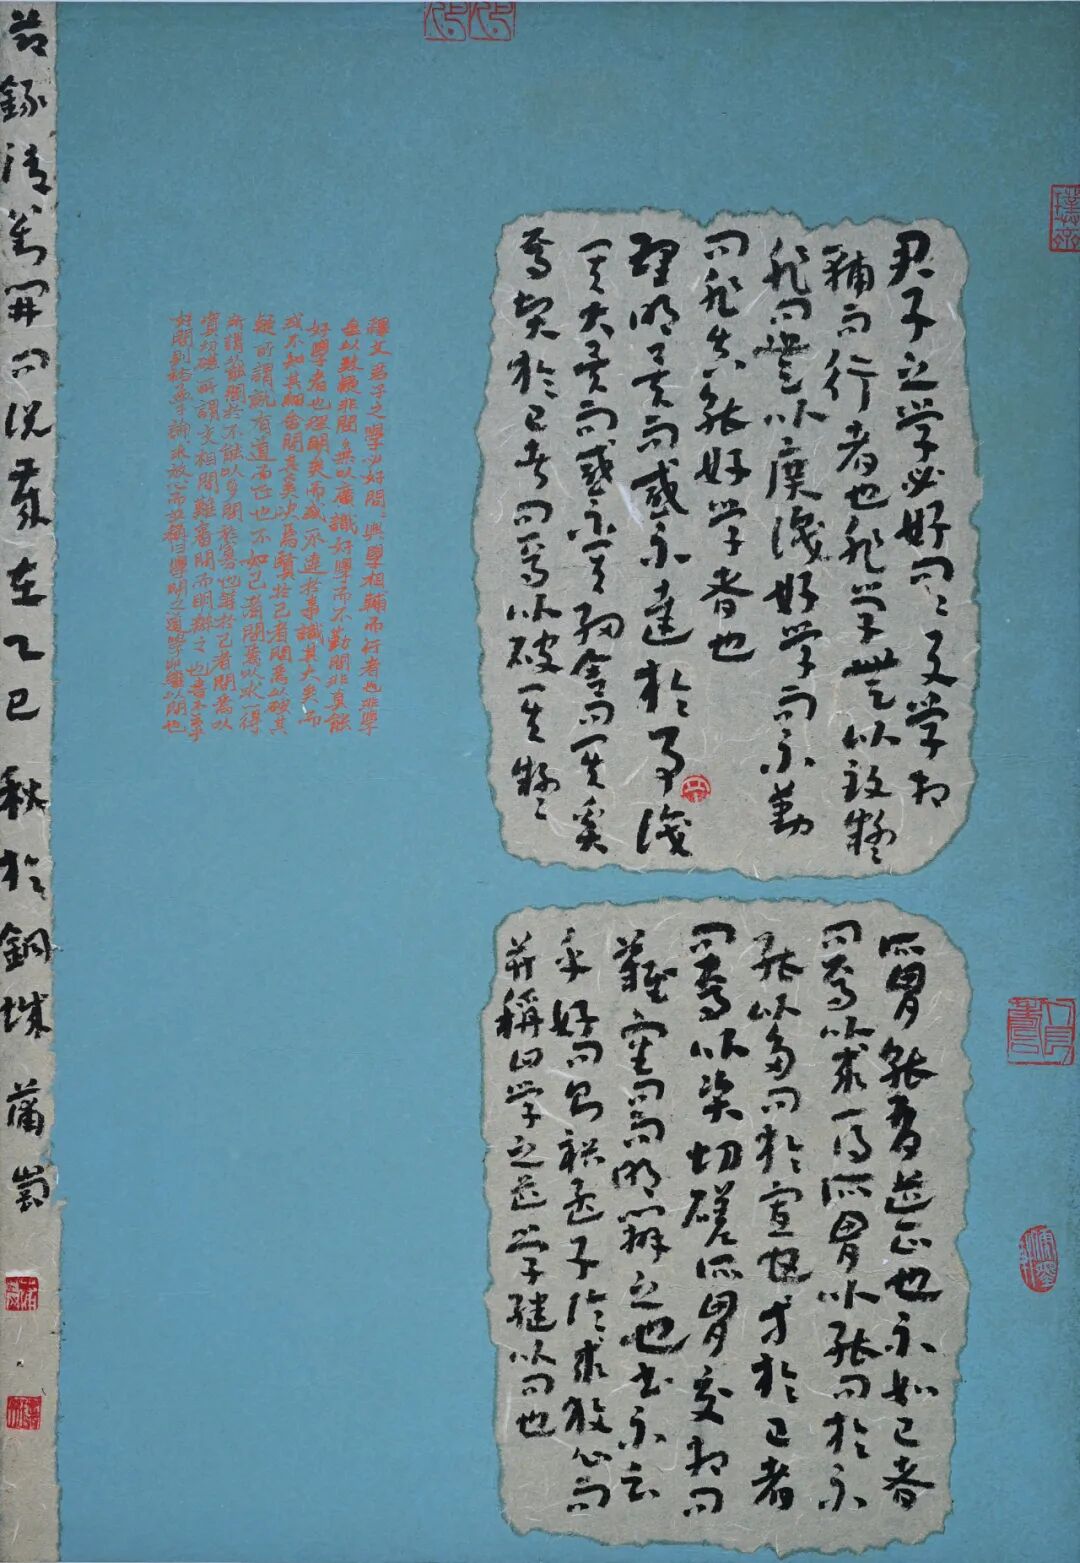 君子之學必好問〻與學相
輔而行者也非學無以致疑
非問無以廣識好學而不勤
問非真能好學者也
理明矣而或不達於事識
其大矣而或不其細舍問其奚
焉賢於己者問焉以破其疑
所謂就有道正也不如己者
問焉以求一得所謂以能問於不
能以多問於寡也等於己者
問焉以資切磋所謂交相問
難審問而明辨之也書不云
乎好問則裕孟子論求放心而
並稱曰學之道學繼以問也
釋文君子之學必好問〻與學相輔而行者也非學
無以致疑非問無以廣識好學而不勤問非真能
好學者也理明矣而或不達於事識其大矣而
或不知其細舍問其奚決焉賢於己者問焉以破其
疑所謂就有道而正也不如己者問焉以求一得
所謂以能問於不能以多問於寡也等於己者問焉以
資切磋所謂交相問難審問而明辨之也書不云乎
好問則裕孟子論求放心而並稱曰學問之道學即繼以問也
節錄清劉開問說歲在乙巳秋於銅城蒲